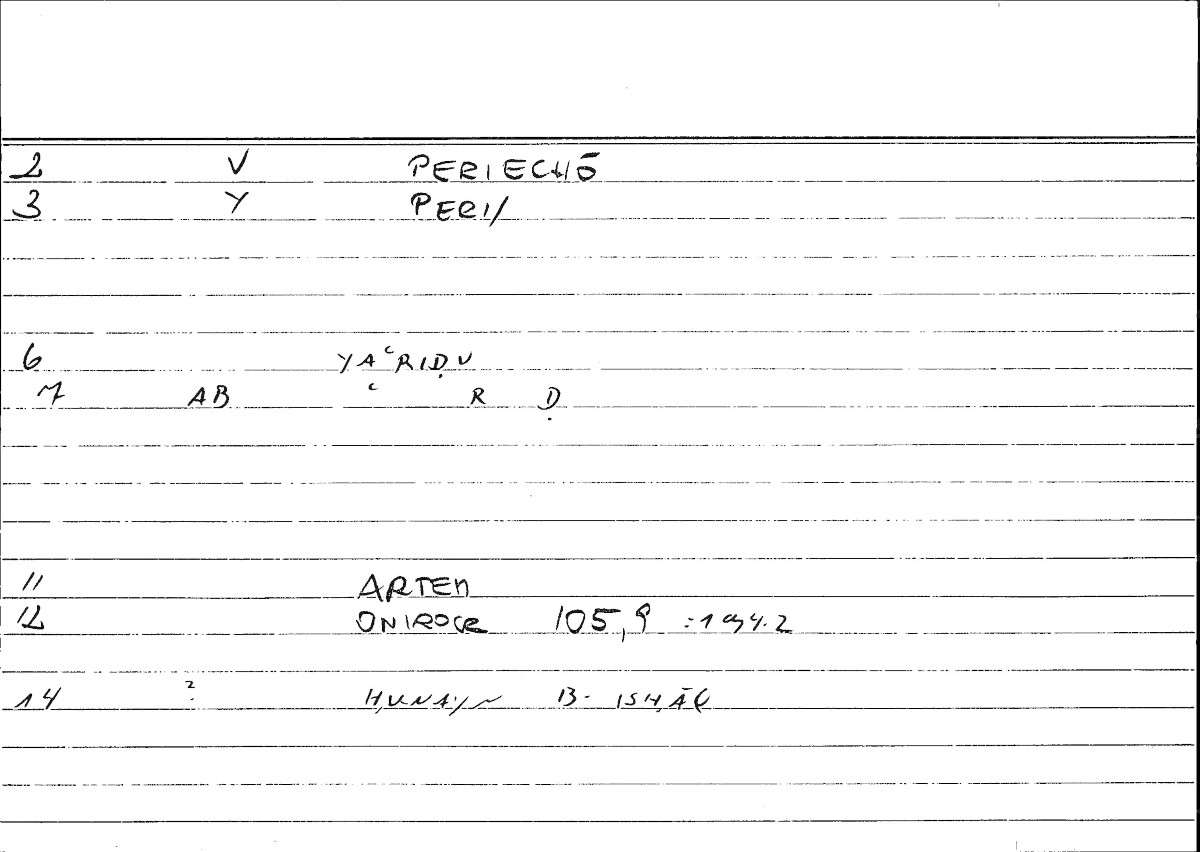 2 V PERIECHŌ
3 Y PERI/
6 YAʿRIḌU
7 AB ʿ R Ḍ
11 ARTEM
12 ONIROCR 105,9 :194.2
14 ? ḤUNAYN B. ISḤĀQ